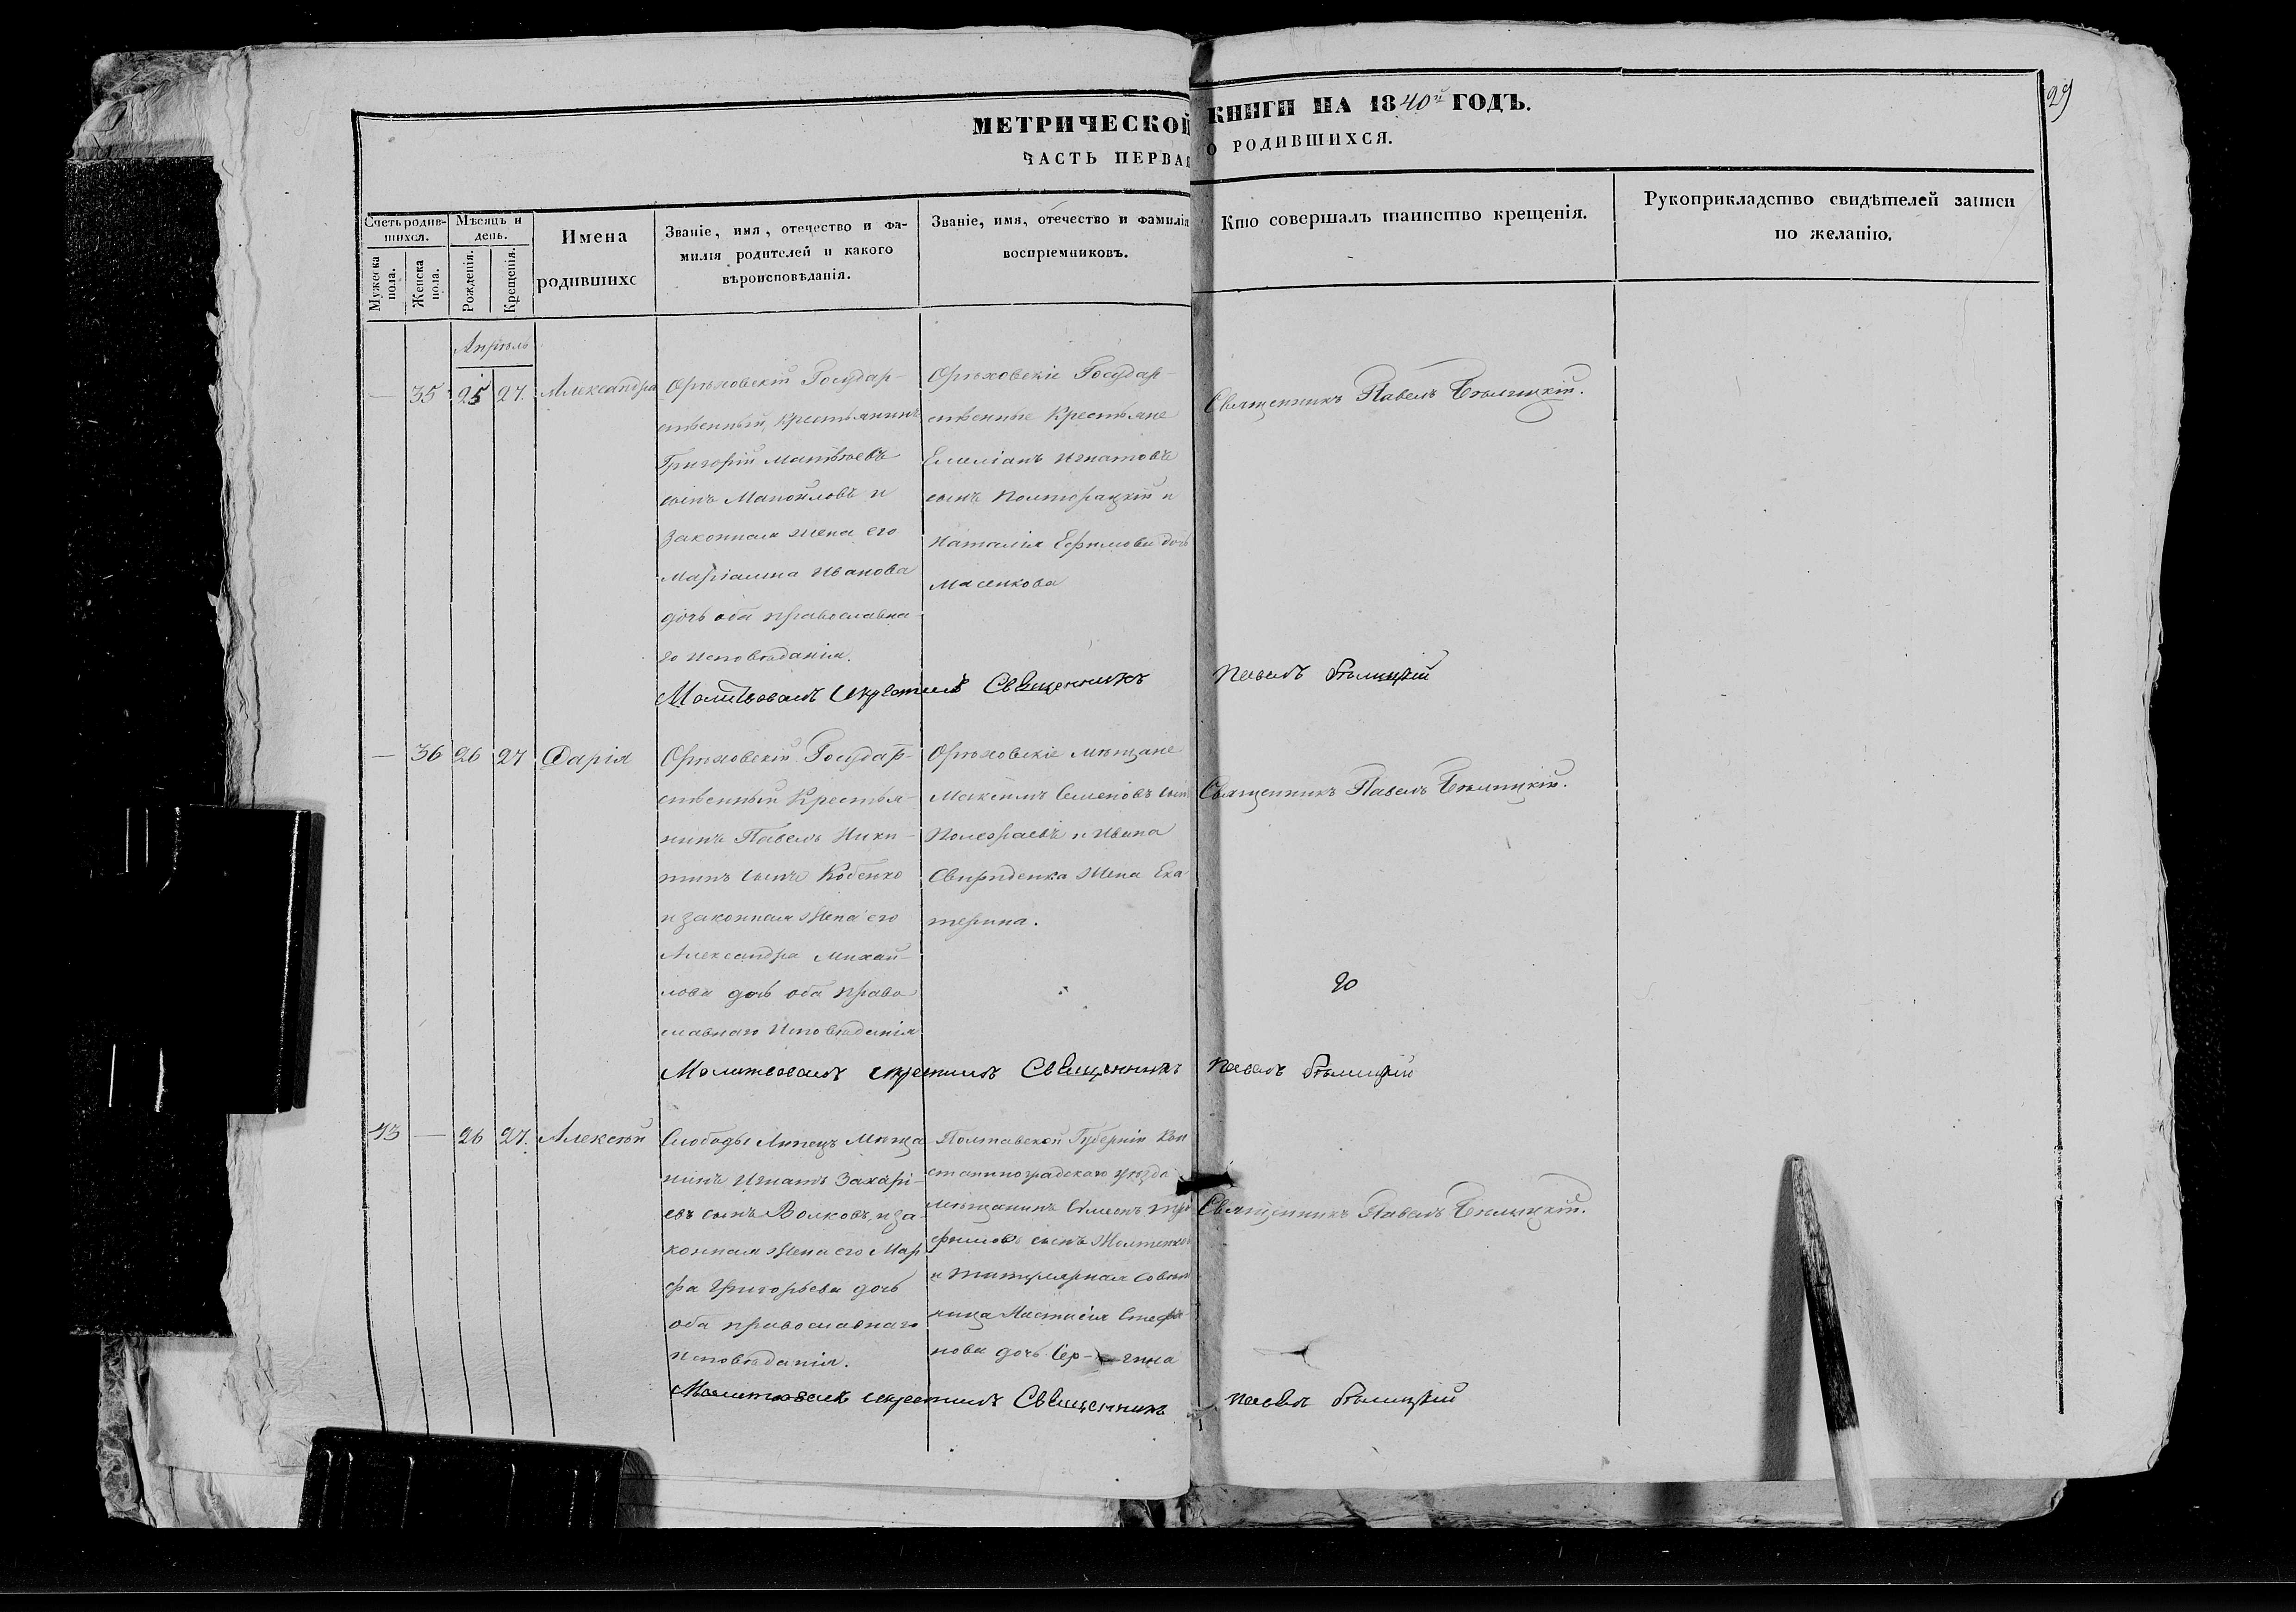 29
МЕТРИЧЕСКОЙ КНИГИ НА 1840й ГОДЪ.
ЧАСТЬ ПЕРВАЯ О РОДИВШИХСЯ.
Счетъ родив-
шихся.
Мужеска пола.
Женска пола.
Мѣсяцъ и
день.
Рожденія.
Крещенія.
Имена
родившихс
Званіе, имя, отечество и фа-
милія родителей и какого
вѣроисповѣданія.
Званіе, имя, отечество и фамилія
воспріемниковъ.
Кто совершалъ таинство крещенія.
Рукоприкладство свидѣтелей записи
по желанію.
Апрѣль
— 35 25 27. Александра
Орѣховскій Государ-
ственный Крестьянинъ
Григорій Матвѣевъ
сынъ Манойловъ и
законная жена его
Маріамна Иванова
дочь оба православна
го исповѣданія.
Орѣховскіе Государ-
ственные Крестьяне
Емеліанъ Игнатовъ
сынъ Полторацкій и
Наталія Ефимова дочь
Масенкова
Священникъ Павелъ Бѣлицкій.
Молитвовалъ и крестилъ Священникъ Павелъ Бѣлицкій
— 36 26 27 Дарія
Орѣховскій Государ-
ственный Крестья-
нинъ Павелъ Ники-
тинъ сынъ Кобенко
и законная жена его
Александра Михай-
лова дочь оба право
славнаго исповѣданія
Орѣховскіе мѣщане
Максимъ Семеновъ сынъ
и Ивана
Свириденка жена Ека
терина.
Священникъ Павелъ Бѣлицкій.
20
Молитвовалъ и крестилъ Священникъ Павелъ Бѣлицкій
43 — 26 27. Алексѣй
Слободы Липецъ Мѣща
нинъ Игнатъ Захарі-
евъ сынъ Волковъ, и за-
конная жена его Мар
фа Григорьева дочь
оба православнаго
исповѣданія.
Полтавской Губерніи Кон
стантиноградскаго уѣзда
мѣщанинъ Симеонъ Тро
фимовъ сынъ
и титулярная совѣт
ница Настасія Стефа
нова дочь
Священникъ Павелъ Бѣлицкій.
Молитвовалъ и крестилъ Священникъ Павелъ Бѣлицкій